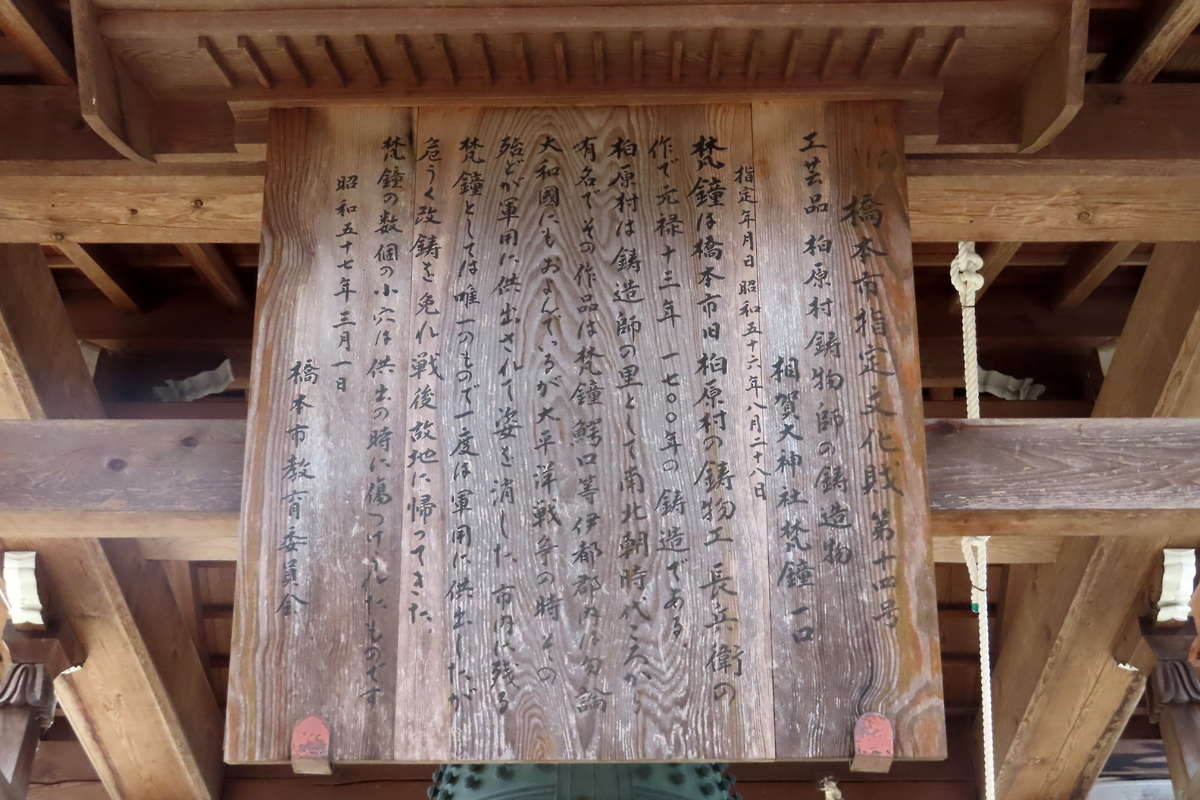 橋本市指定文化財 第十四号
工芸品 柏原村鋳物師の鋳造物
相賀大神社梵鐘一口
指定年月日 昭和五十六年八月二十八日
梵鐘は橋本市旧柏原村の鋳物工 長兵衛の
作で元禄十三年 一七〇〇年の鋳造である。
柏原村は鋳造師の里として南北朝時代ころから
有名でその作品は梵鐘鰐口等伊都郡内は勿論
大和國にもおよんでいるが大平洋戦争の時その
殆どが軍用に供出されて姿を消した 市内に残る
梵鐘としては唯一のもので一度は軍用に供出したが
危うく改鋳を免れ戦後故地に帰ってきた
梵鐘の数個の小穴は供出の時に傷つけれたものです
昭和五十七年三月一日
橋本市教育委員会